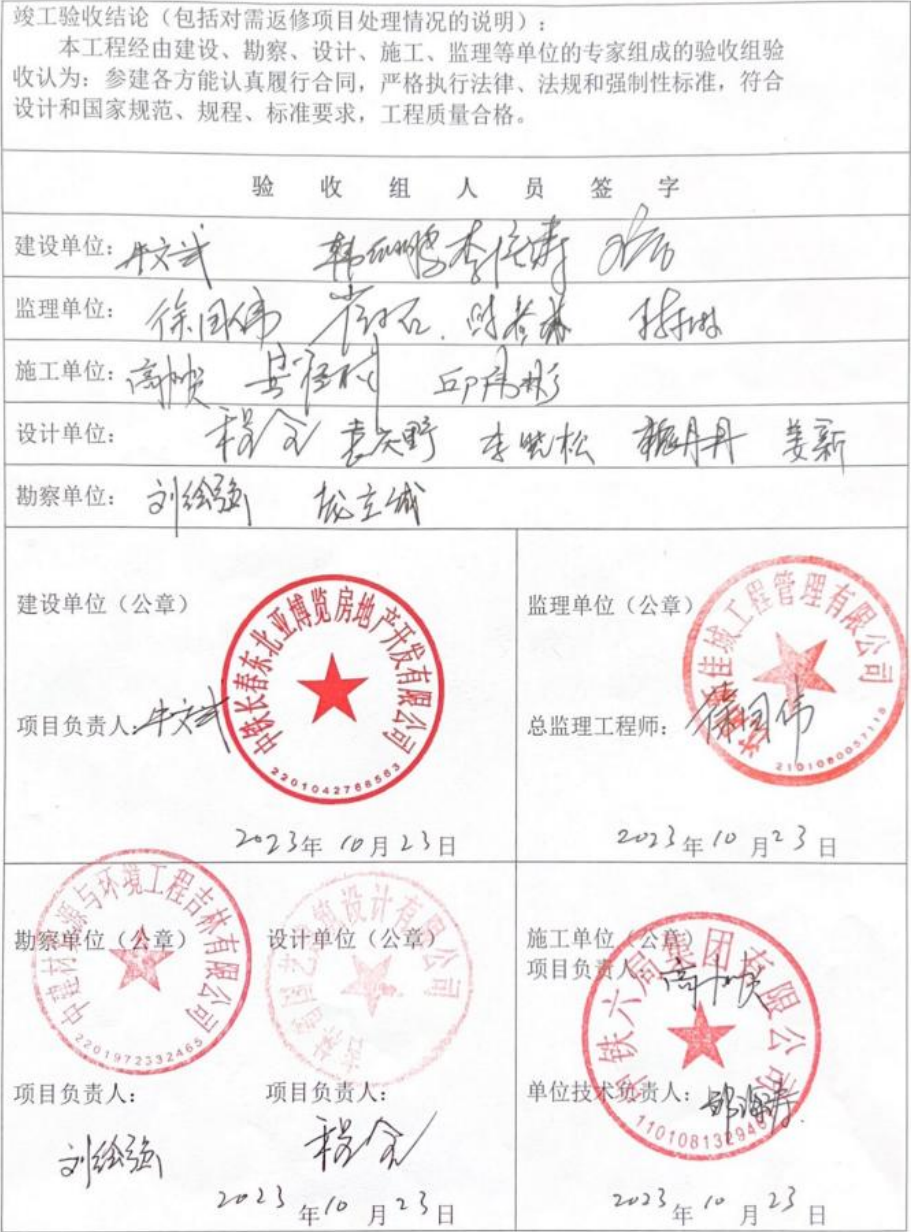 竣工验收结论（包括对需返修项目处理情况的说明）：
本工程经由建设、勘察、设计、施工、监理等单位的专家组成的验收组验
收认为：参建各方能认真履行合同，严格执行法律、法规和强制性标准，符合
设计和国家规范、规程、标准要求，工程质量合格。
验 收 组 人 员 签 字
建设单位：牛文斌
监理单位：徐国伟
施工单位：
设计单位：程全 袁天野 李晓松 姜新
勘察单位：刘绘强 庞立城
建设单位（公章）
中铁长春东北亚博览房地产开发有限公司
2201042768563
项目负责人：牛文斌
2023年10月23日
监理单位（公章）
佳城工程管理有限公司
2101080057118
总监理工程师：徐国伟
2023年10月23日
勘察单位（公章）
中建材资源与环境工程吉林有限公司
2201972332465
项目负责人：
刘绘强
设计单位（公章）
设计有限公司
项目负责人：
程全
2023年10月23日
施工单位（公章）
中铁六局集团有限公司
项目负责人：
单位技术负责人：
11010813294
2023年10月23日